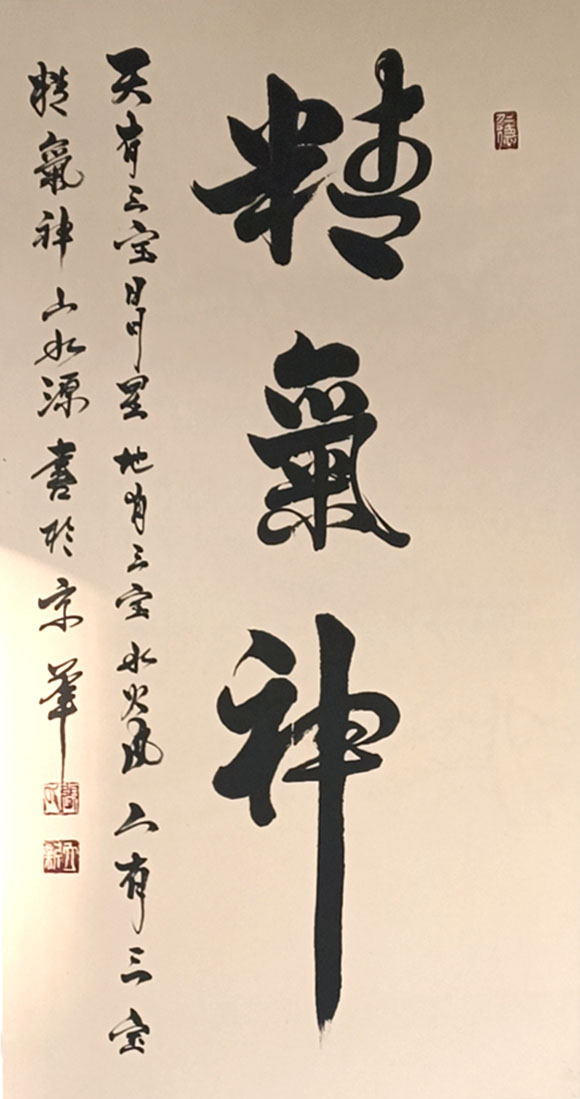 精氣神
天有三宝日月星地有三宝水火风人有三宝
精氣神山水源書於京華